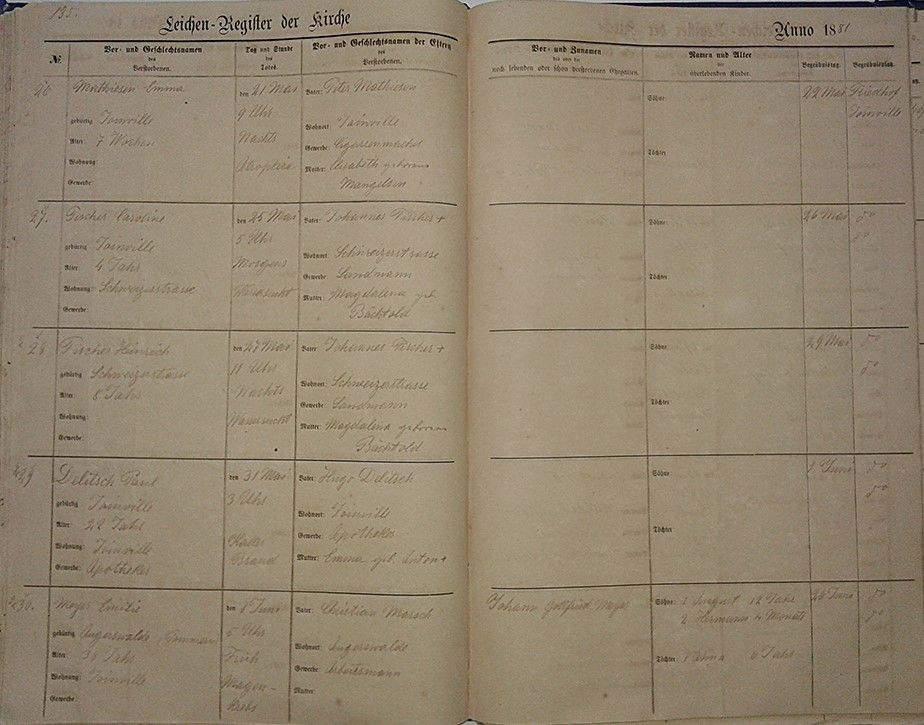 135.
Leichen-Register der Kirche
Anno 1881
№
Vor- und Geschlechtsnamen
des
Verstorbenen.
Tag und Stunde
des
Todes.
Vor- und Geschlechtsnamen der Eltern
des
Verstorbenen.
Vor- und Zunamen
des von der
noch lebenden oder schon verstorbenen Ehegatten.
Namen und Alter
der
überlebenden Kinder.
Begräbnistag.
Begräbnisplatz.
26
Mathiesen Emma
gebürtig Joinville
Alter: 7 Wochen
Wohnung:
Gewerbe:
den 21 Mai
9 Uhr
Nachts
Vater: Peter Mathiesen
Wohnort: Joinville
Gewerbe: Cigarrenmacher
Mutter: Elisabeth geborene
Mangelsen
Söhne:
Töchter:
22 Mai
Friedhof
Joinville
27.
Fischer Caroline
gebürtig Joinville
Alter: 4 Jahr
Wohnung: Schweizerstrasse
Gewerbe:
den 25 Mai
5 Uhr
Morgens
Wassersucht
Vater: Johannes Fischer +
Wohnort: Schweizerstrasse
Gewerbe: Landmann
Mutter: Magdalena geb
Bächtold
Söhne:
Töchter:
26 Mai
do
do
28
Fischer Heinrich
gebürtig Schweizerstrasse
Alter: 8 Jahr
Wohnung:
Gewerbe:
den 27 Mai
11 Uhr
Nachts
Wassersucht
Vater: Johannes Fischer +
Wohnort: Schweizerstrasse
Gewerbe: Landmann
Mutter: Magdalena geborene
Bächtold
Söhne:
Töchter:
29 Mai
do
do
29
Delitsch Paul
gebürtig Joinville
Alter: 22 Jahr
Wohnung: Joinville
Gewerbe: Apotheker
den 31 Mai
3 Uhr
Kalter
Brand
Vater: Hugo Delitsch
Wohnort: Joinville
Gewerbe: Apotheker
Mutter: Emma geb. Anton +
Söhne:
Töchter:
1 Juni
do
do
30.
Meyer Emilie
gebürtig Angerswalde
Alter:
Wohnung: Joinville
Gewerbe:
5 Uhr
Früh
Magen-
krebs
Vater: Christian Marsch
Wohnort: Angerswalde
Gewerbe: Arbeitsmann
Mutter:
Johann Gottfried Meyer
Söhne: 1 August 12 Jahr
2 Hermann 4 Monate
Töchter: 6 Jahr
Juni
do
do